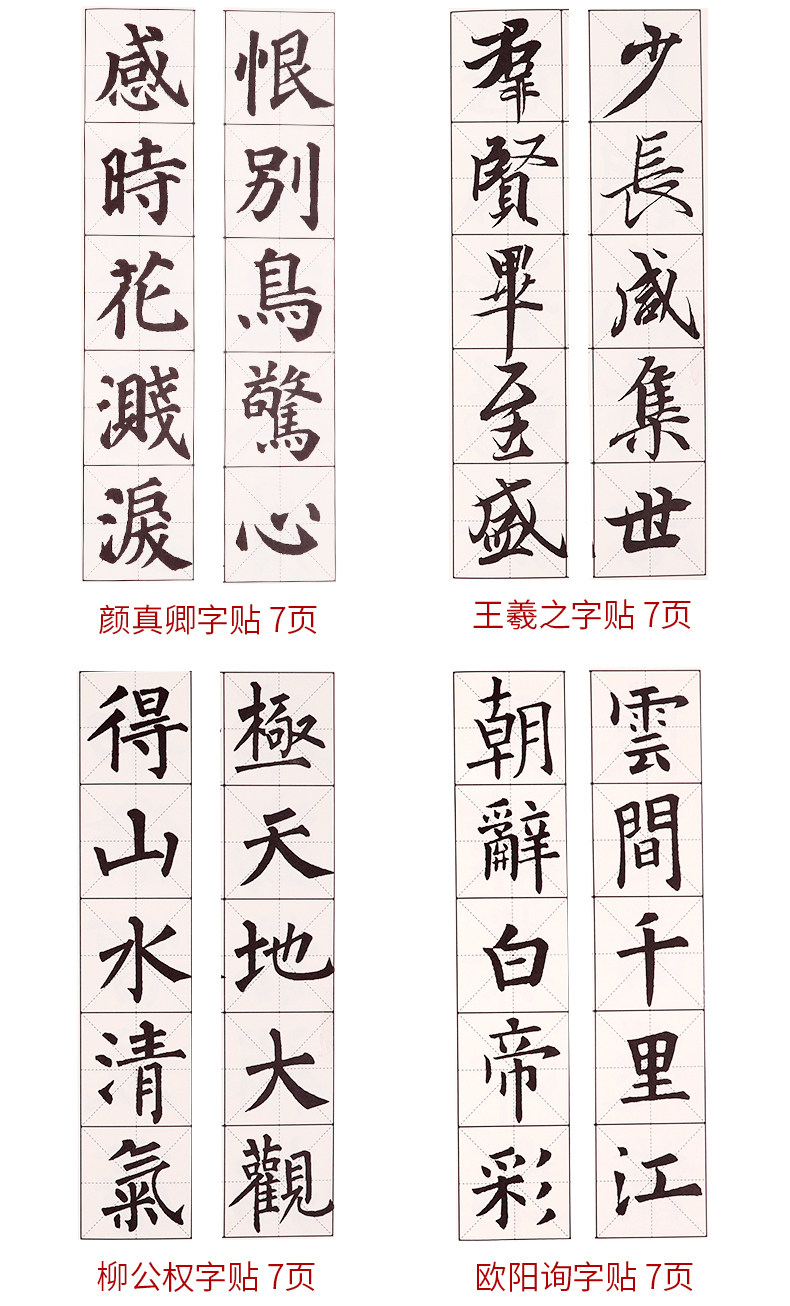 感時花濺淚
恨別鳥驚心
颜真卿字贴 7页
羣賢畢至盛
少長咸集世
王羲之字贴 7页
得山水清氣
極天地大觀
柳公权字贴 7页
朝辭白帝彩
雲間千里江
欧阳询字贴 7页